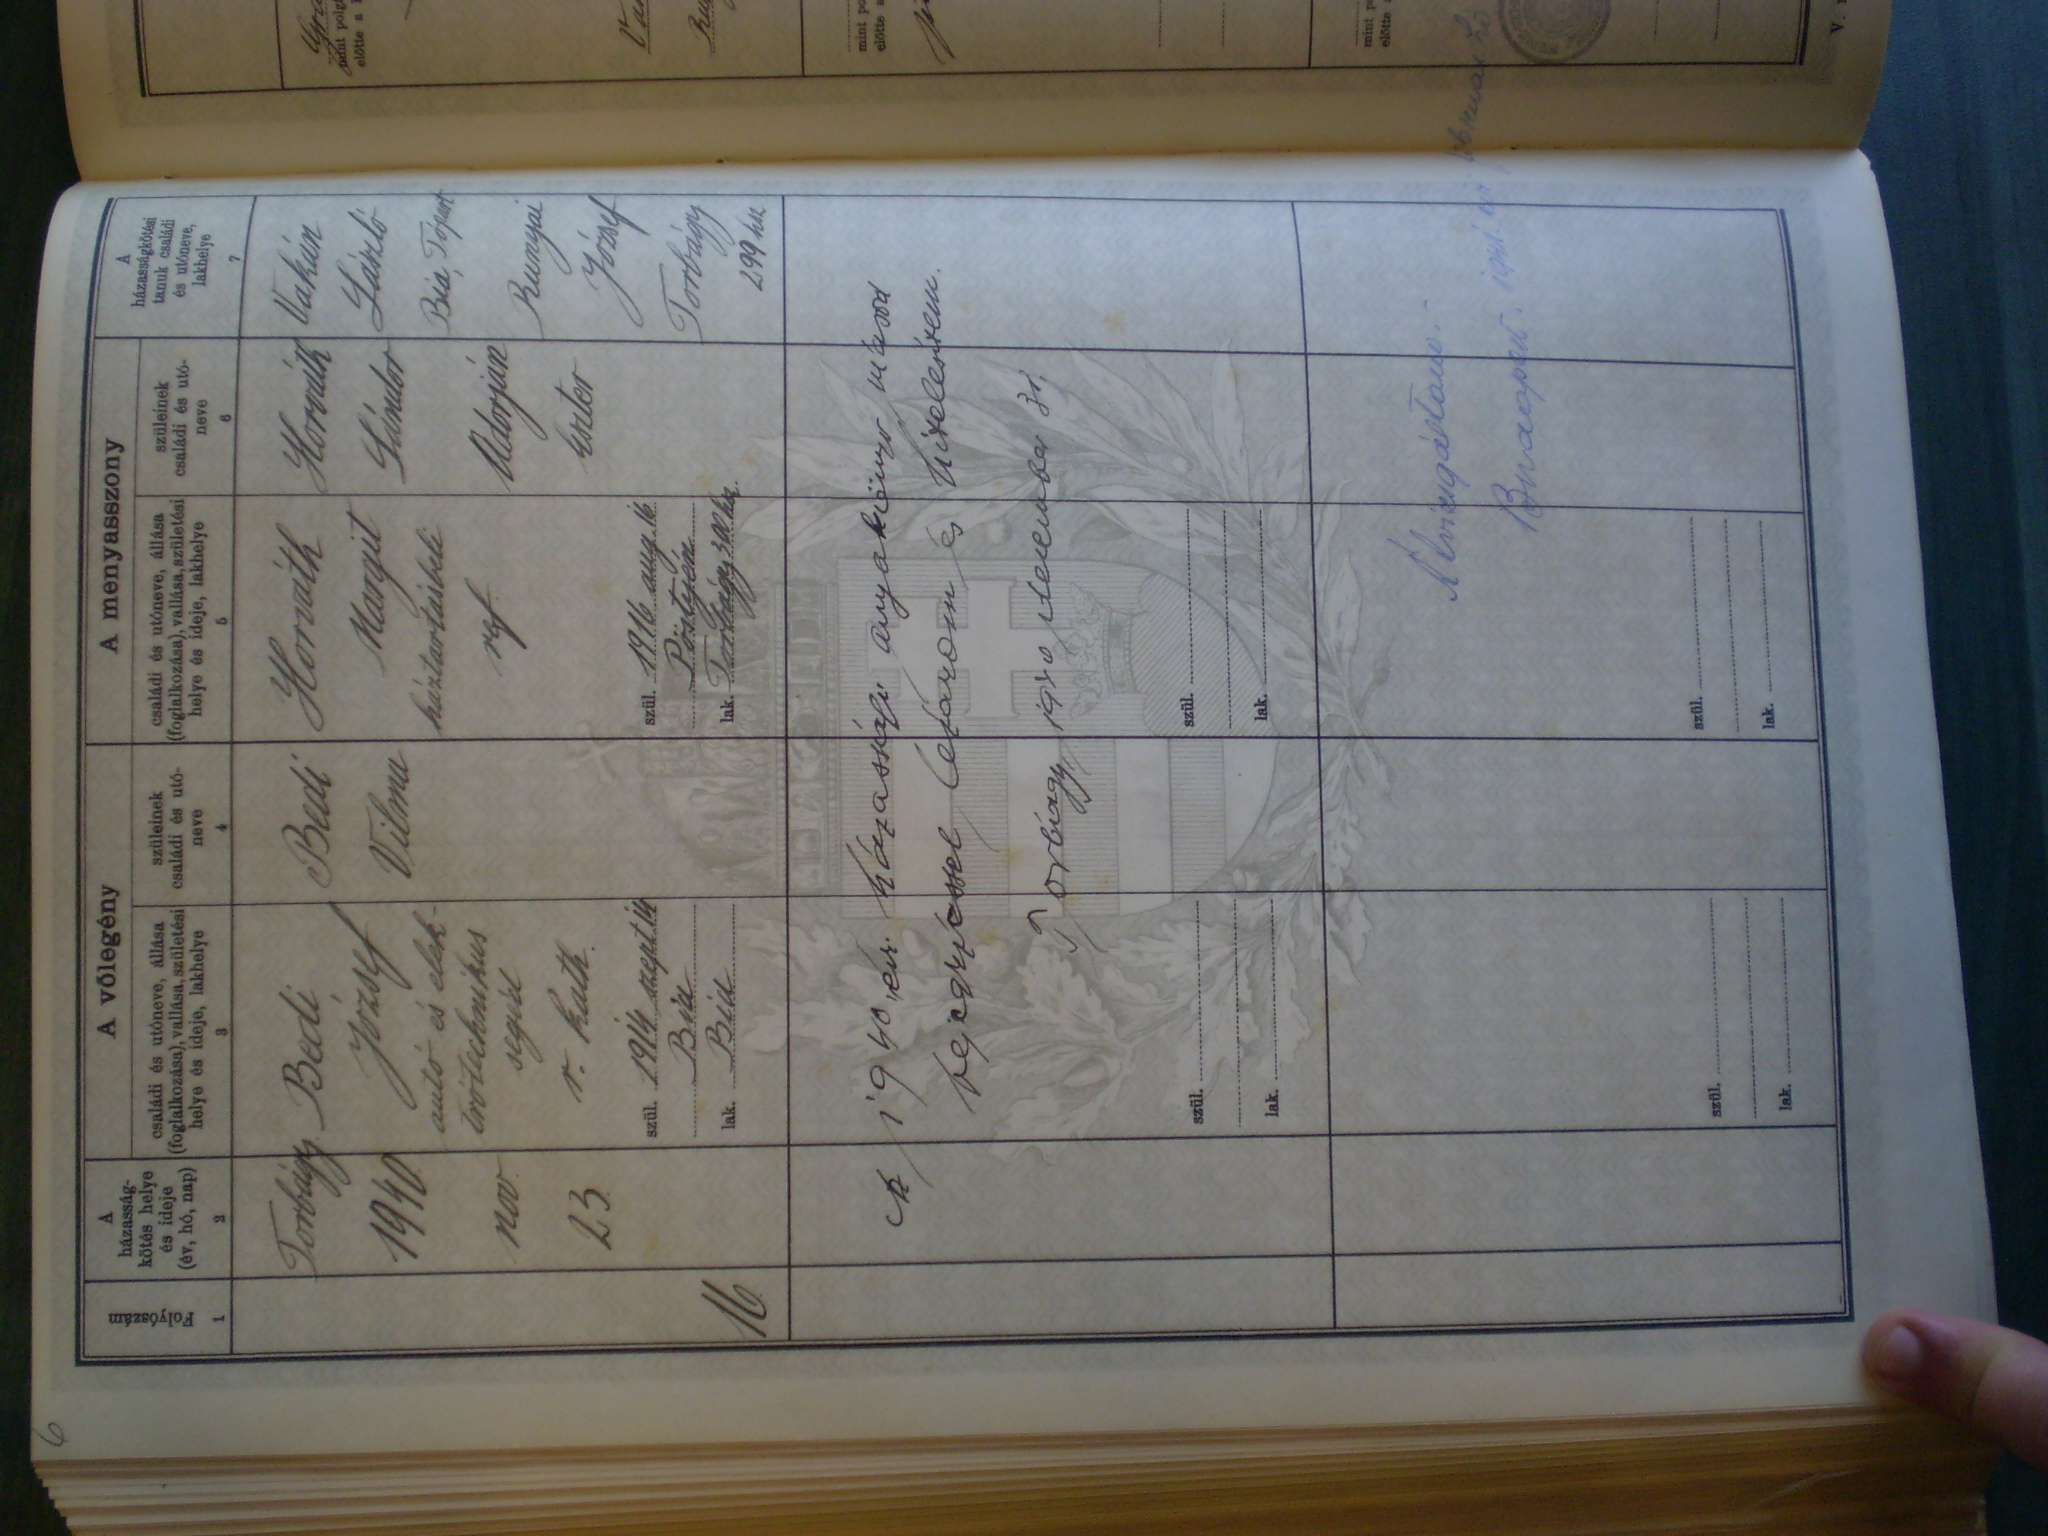 6
A vőlegény
A menyasszony
Folyószám
A
házasság-
kötés helye
és ideje
(év, hó, nap)
családi és utóneve, állása
(foglalkozása), vallása, születési
helye és ideje, lakhelye
szüleinek
családi és utó-
neve
családi és utóneve, állása
(foglalkozása), vallása, születési
helye és ideje, lakhelye
szüleinek
családi és utó-
neve
A
házasságkötési
tanuk családi
és utóneve,
lakhelye
1
2
3
4
5
6
7
16
Torbágy
1940
nov.
23.
Bedi
József
autó és elek-
trótechnikus
segéd
r. kath.
szül. 1914 szept. 14
Bia
lak. Bia
Bedi
Vilma
Horváth
Margit
háztartásbeli
ref.
szül. 1916 aug. 16
lak. Torbágy 300 hsz.
Horváth
Sándor
Adorján
Eszter
László
Bia,
József
Torbágy
299 hsz
Az 1940. évi házassági anyakönyv másod
bejegyzéssel lezárom és hitelesítem.
Torbágy, 1940 december 31.
szül.
lak.
szül.
lak.
Átvizsgáltam.
szül.
lak.
szül.
lak.
mint polgári
előtte a
mint po
előtte a
mint po
előtte
V.